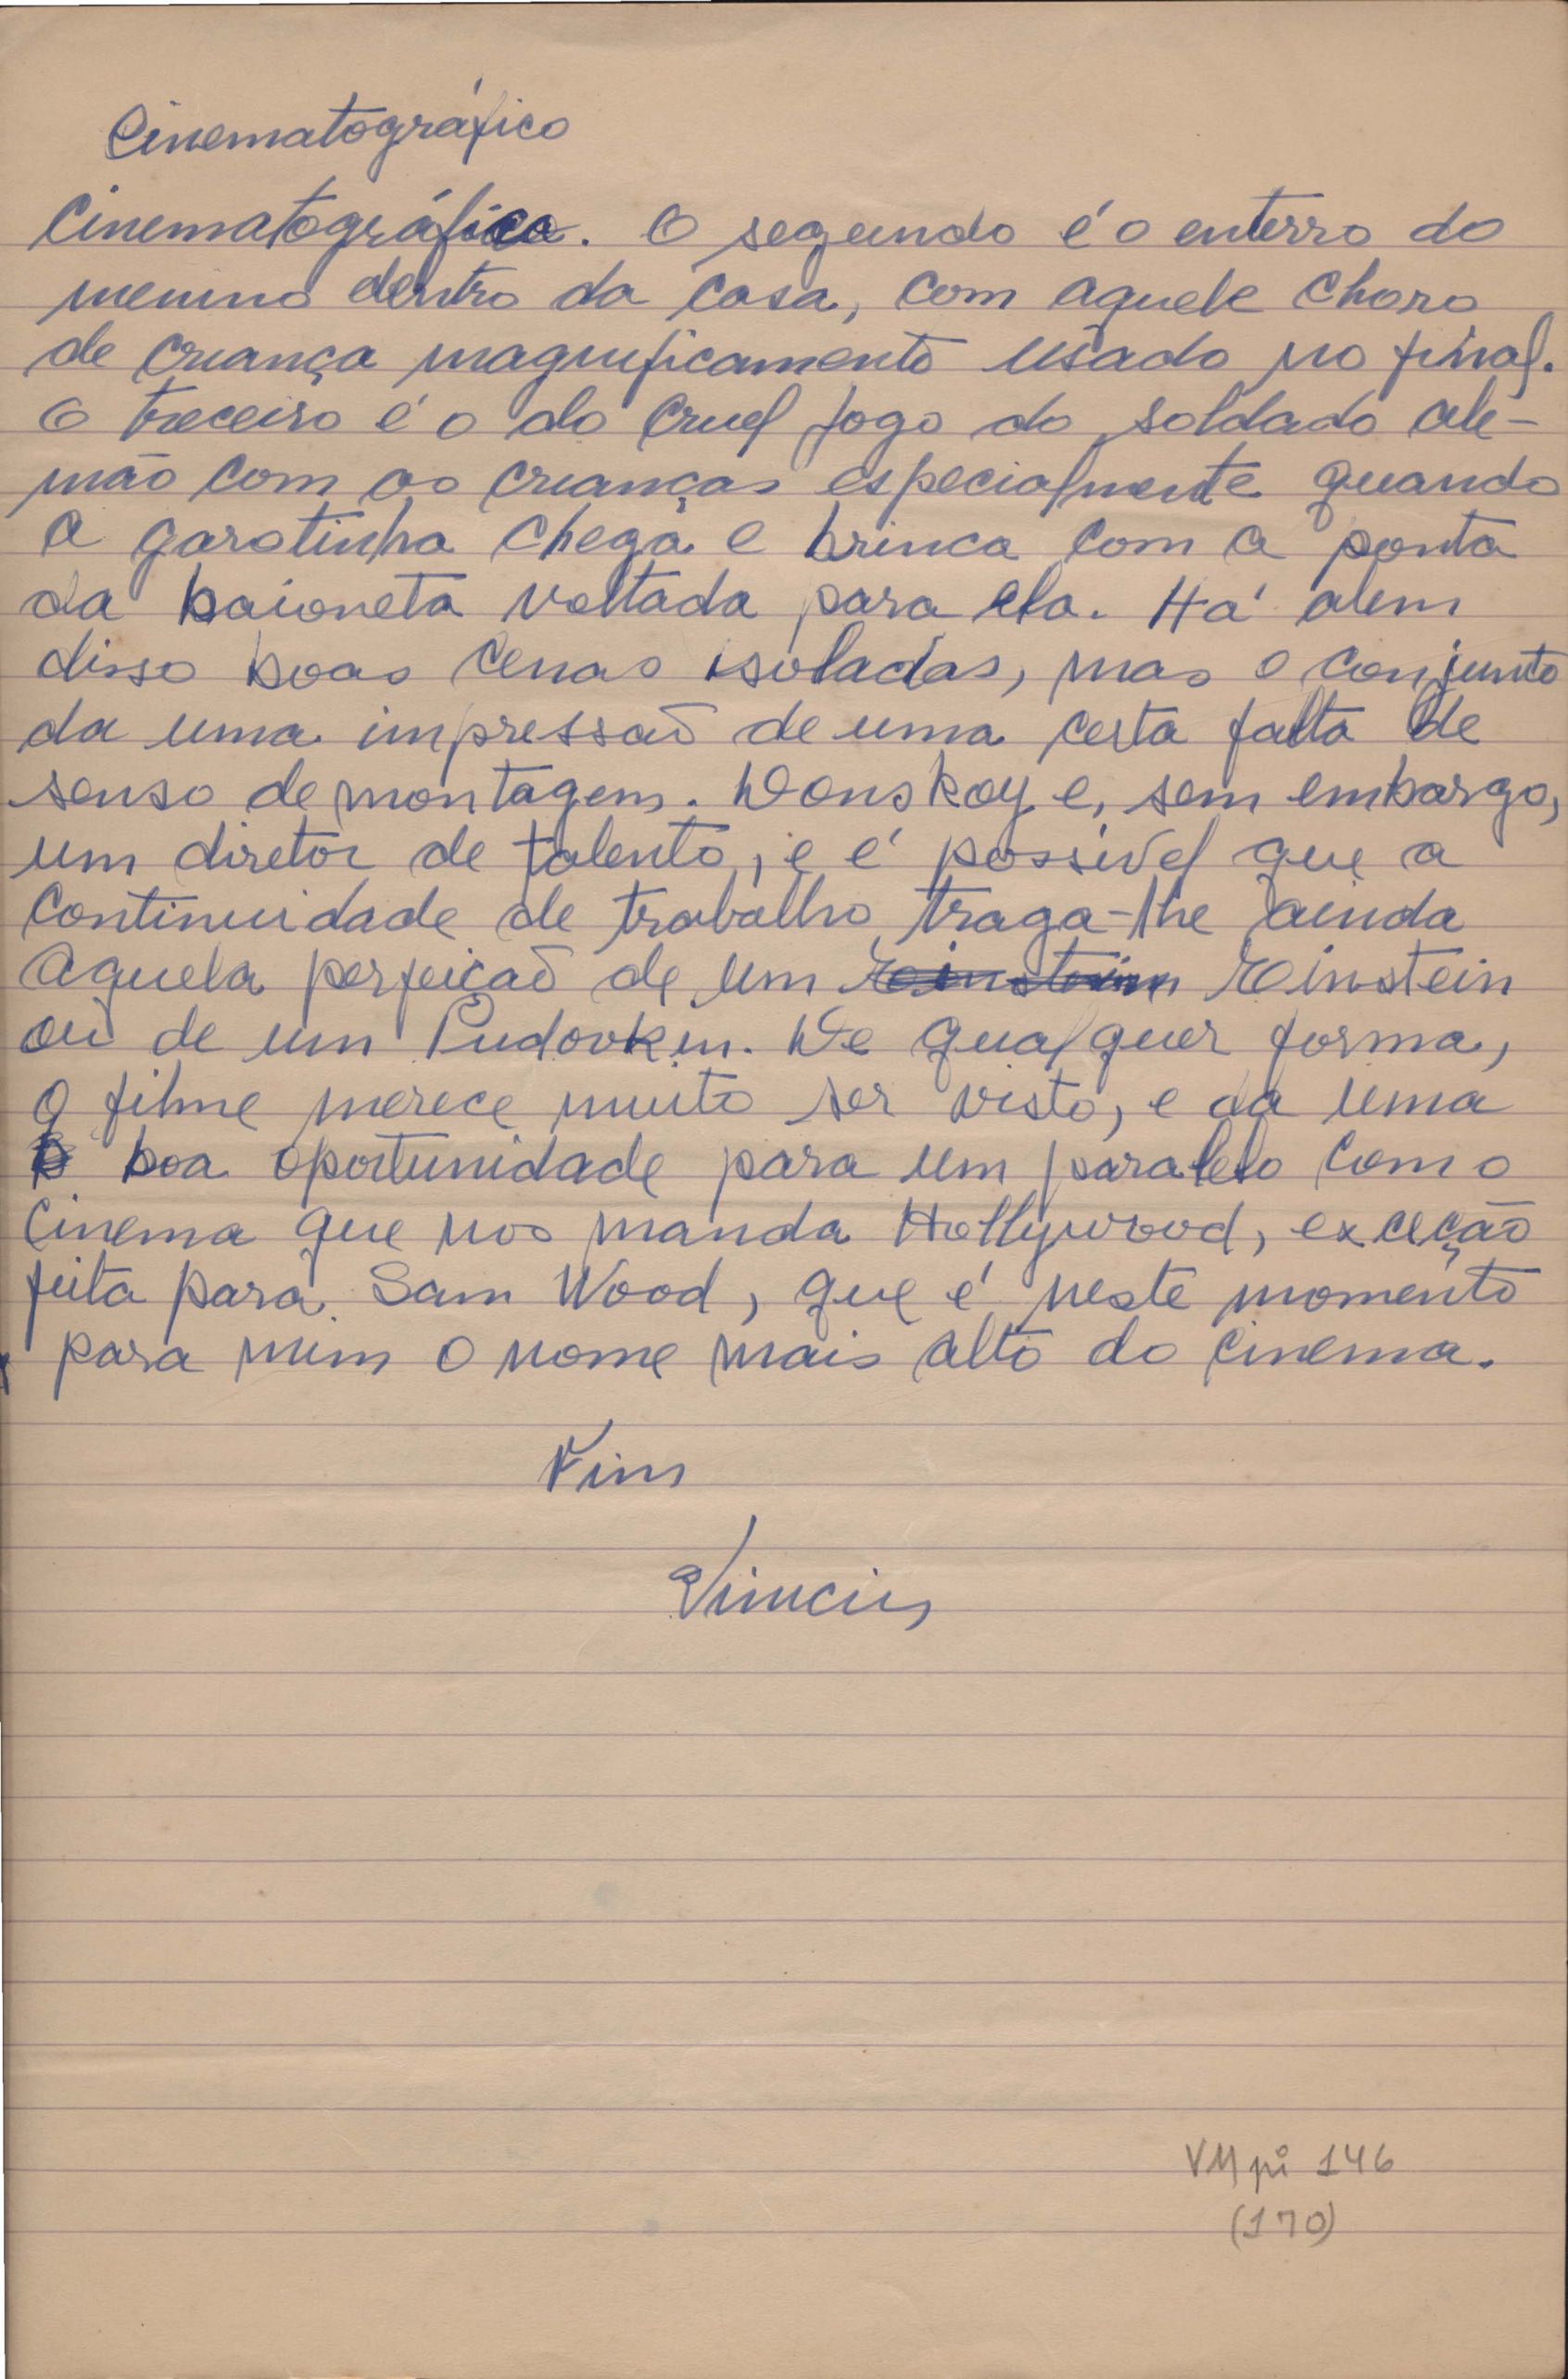 Cinematográfico
Cinematográfica. O segundo é o enterro do
menino dentro da casa, com aquele choro
de criança magnificamente usado no final.
O treceiro é o do cruel jogo do soldado ale-
mão com as crianças especialmente quando
a garotinha chega e brinca com a ponta
da baioneta voltada para ela. Há alem
disso boas cenas isoladas, mas o conjunto
da uma impressaõ de uma certa falta de
senso de montagem. Donskoy e, sem embargo,
um diretor de talento, e é possível que a
continuidade de trabalho traga-lhe ainda
aquela perfeiçaõ de um Einstein Einstein
ou de um Pudovkin. De qualquer forma,
o filme merece muito ser visto, e da uma
b boa oportunidade para um paralelo com o
cinema que nos manda Hollywood, exceção
feita para Sam Wood, que é neste momento
para mim o nome mais alto do cinema.
Fim
Vinicius
VMpi 146
(170)